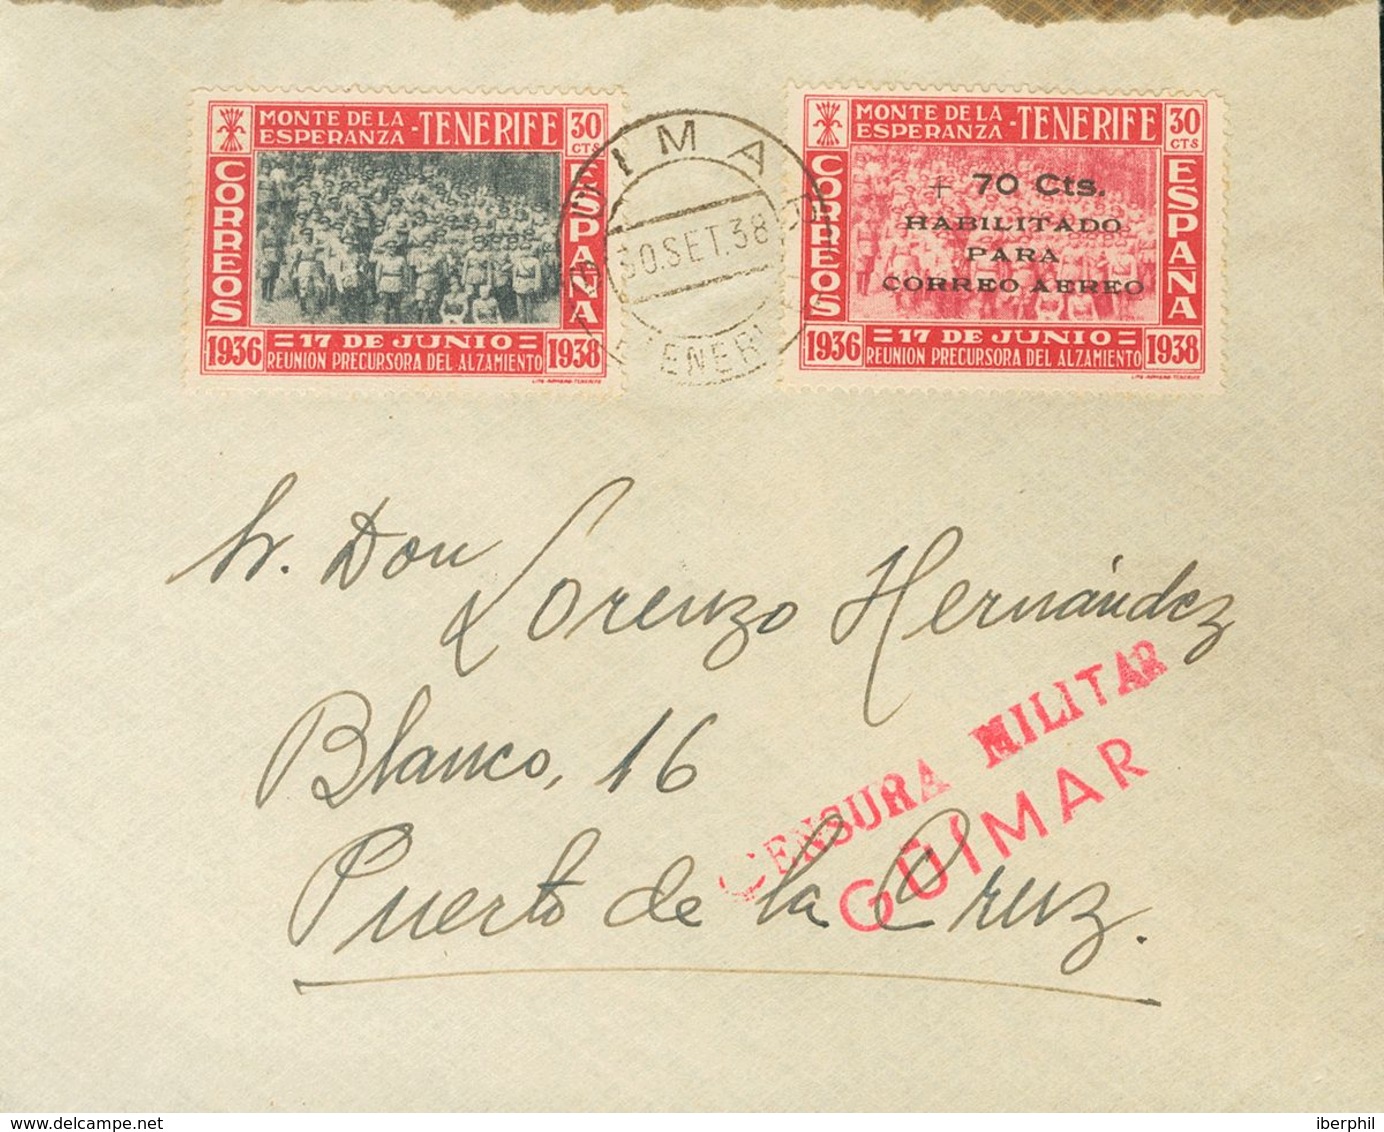 MONTE DE LA
ESPERANZA - TENERIFE
30
CTS
CORREOS
ESPAÑA
1936
= 17 DE JUNIO =
REUNION PRECURSORA DEL ALZAMIENTO
1938
GÜIMAR
30.SET.38
TENERI
MONTE DE LA
ESPERANZA - TENERIFE
30
CTS
CORREOS
ESPAÑA
+ 70 Cts.
HABILITADO
PARA
CORREO AEREO
1936
= 17 DE JUNIO =
REUNION PRECURSORA DEL ALZAMIENTO
1938
Sr. Don
Lorenzo Hernández
Blanco, 16
Puerto de la Cruz.
CENSURA MILITAR
GÜIMAR
delcampe.net
iberphil